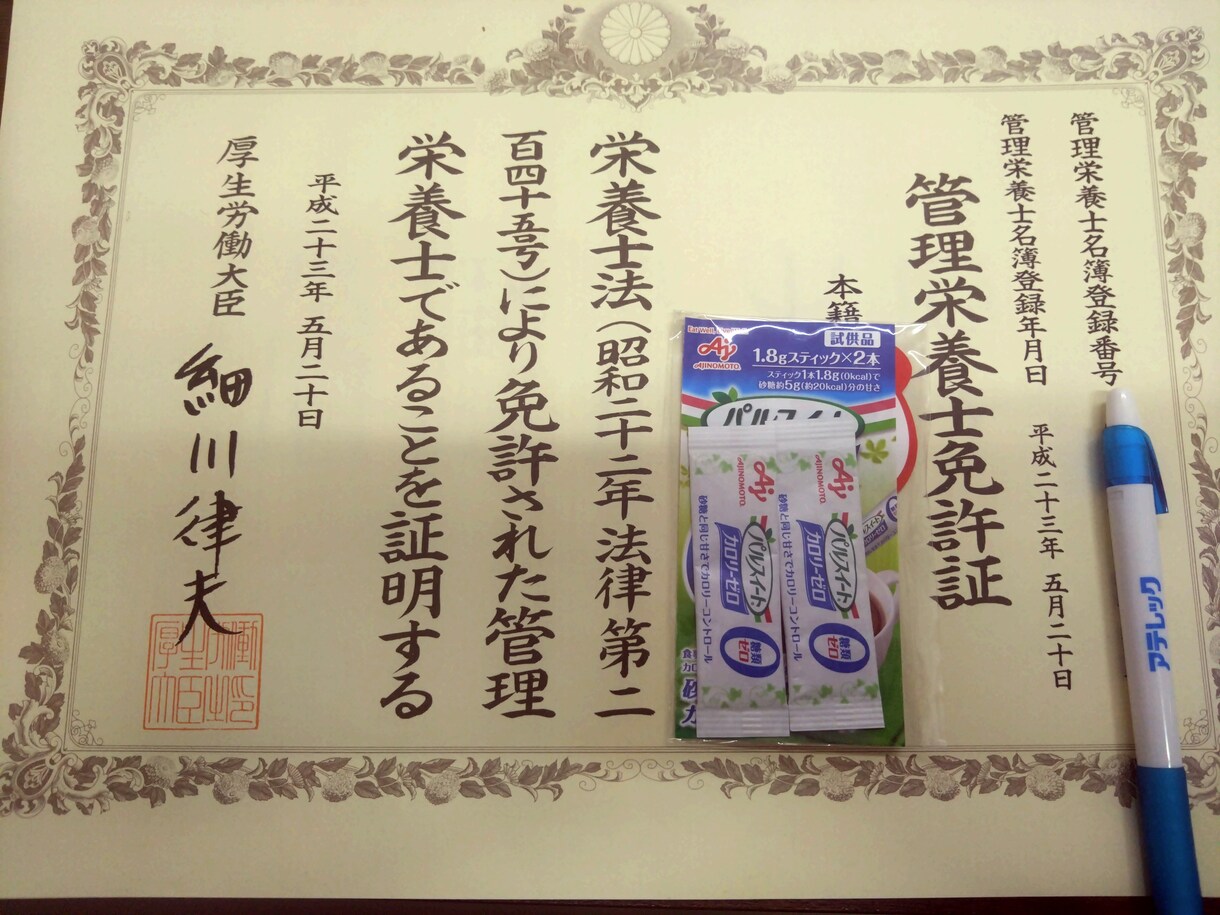 管理栄養士名簿登録番号
管理栄養士名簿登録年月日 平成二十三年 五月二十日
管理栄養士免許証
本籍
栄養士法(昭和二十二年法律第二
百四十五号)により免許された管理
栄養士であることを証明する
平成二十三年 五月二十日
厚生労働大臣 細川律夫
試供品
AJINOMOTO
1.8gスティック×2本
スティック1本1.8g(0kcal)で
砂糖約5g(約20kcal)分の甘さ
パルスイート
AJINOMOTO
パルスイート
カロリーゼロ
糖類ゼロ
0
砂糖と同じ甘さでカロリーコントロール
AJINOMOTO
パルスイート
カロリーゼロ
糖類ゼロ
0
砂糖と同じ甘さでカロリーコントロール
アデレック